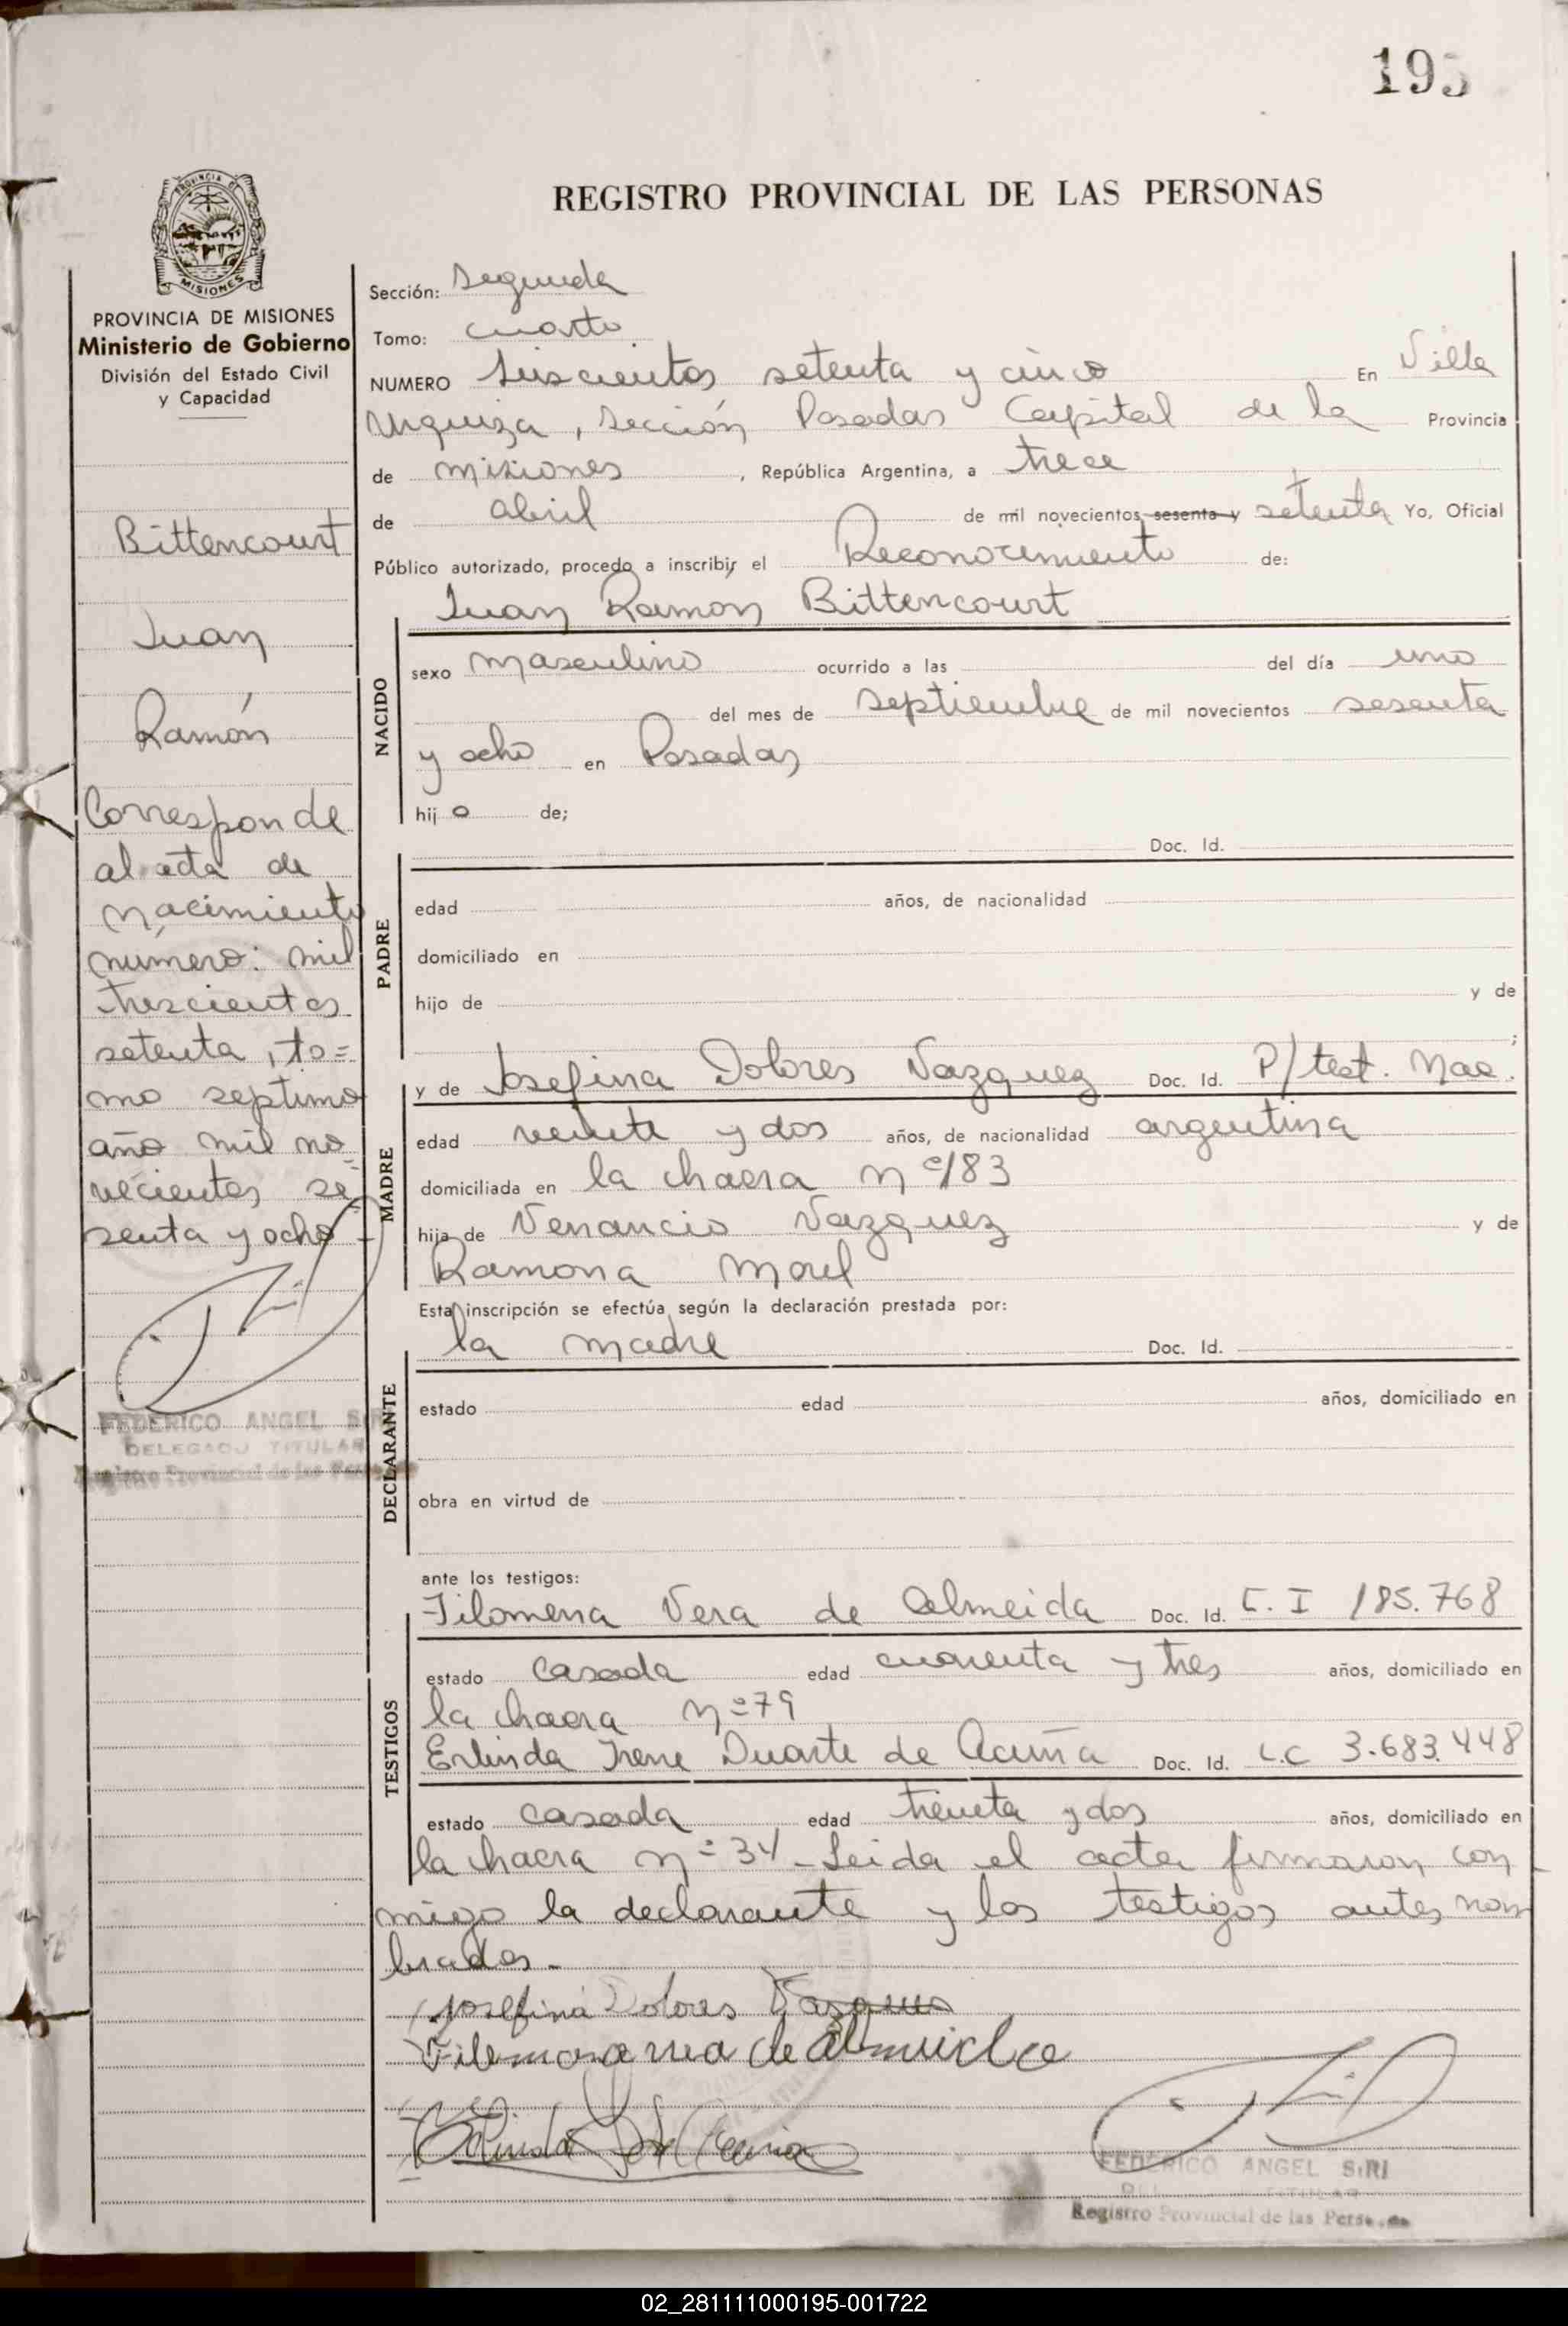 195
REGISTRO PROVINCIAL DE LAS PERSONAS
PROVINCIA DE MISIONES
Ministerio de Gobierno
División del Estado Civil
y Capacidad
Bittencourt
Juan
Ramón
Corresponde
al acta de
nacimiento
número: mil
trescientos
setenta, to=
mo septimo
año mil no
vecientos se
senta y ocho
FEDERICO ANGEL SIRI
DELEGADO TITULAR
Registro Provincial de las
Sección: Segunda
Tomo: cuarto
NUMERO Seiscientos setenta y cinco En Villa
Urquiza, Sección Posadas Capital de la Provincia
de misiones, República Argentina, a trece
de abril de mil novecientos sesenta y setenta Yo, Oficial
Público autorizado, procedo a inscribir el Reconocimiento de:
Juan Ramón Bittencourt
NACIDO
sexo masculino ocurrido a las del día uno
del mes de septiembre de mil novecientos sesenta
y ocho en Posadas
hijo de;
Doc. Id.
PADRE
edad años, de nacionalidad
domiciliado en
hijo de y de
;
y de Josefina Dolores Vazquez Doc. Id. P/test. Nac.
MADRE
edad veinte y dos años, de nacionalidad argentina
domiciliada en la chacra nº 183
hija de Venancio Vazquez y de
Ramona Morel
Esta inscripción se efectúa según la declaración prestada por:
la madre Doc. Id.
DECLARANTE
estado edad años, domiciliado en
obra en virtud de
ante los testigos:
Filomena Vera de Almeida Doc. Id. C.I 185.768
TESTIGOS
estado casada edad cuarenta y tres años, domiciliado en
la chacra nº 79
Erlinda Irene Duarte de Acuña Doc. Id. L.C 3.683.448
estado casada edad treinta y dos años, domiciliado en
la chacra nº 34 - Leida el acta firmaron con
migo la declarante y los testigos antes nom
brados.-
Josefina Dolores Vazques
de Almeida
FEDERICO ANGEL SIRI
TITULAR
Registro Provincial de las
02_281111000195-001722